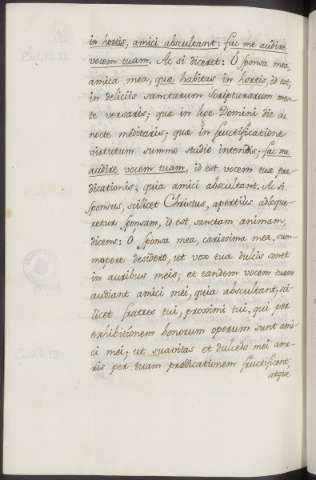 in hortis, amici abscultant: fac me audire
vocem tuam. Ac si diceret: O sponsa mea,
amica mea, quæ habitas in hortis, id est,
in deliciis sanctarum scripturarum men-
te versaris; quæ in lege Domini die ac
nocte meditaris; quæ in fructificatione
virtutum summo studio intendis; fac me
audire vocem tuam, id est vocem tuæ præ-
dicationis; quia amici abscultant. Ac si
sponsus, scilicet Christus, apertius adloque-
retur sponsam, id est, sanctam animam,
dicens: O sponsa mea, carissima mea, sum-
mopere desidero, ut vox tua dulcis sonet
in auribus meis, et eandem vocem tuam
audiant amici mei, quia abscultant, sci-
licet fratres tui, proximi tui, qui per
exhibitionem bonorum operum sunt ami-
ci mei; ut suavitas et dulcedo mei amo-
ris per tuam prædicationem fructificent,
atque